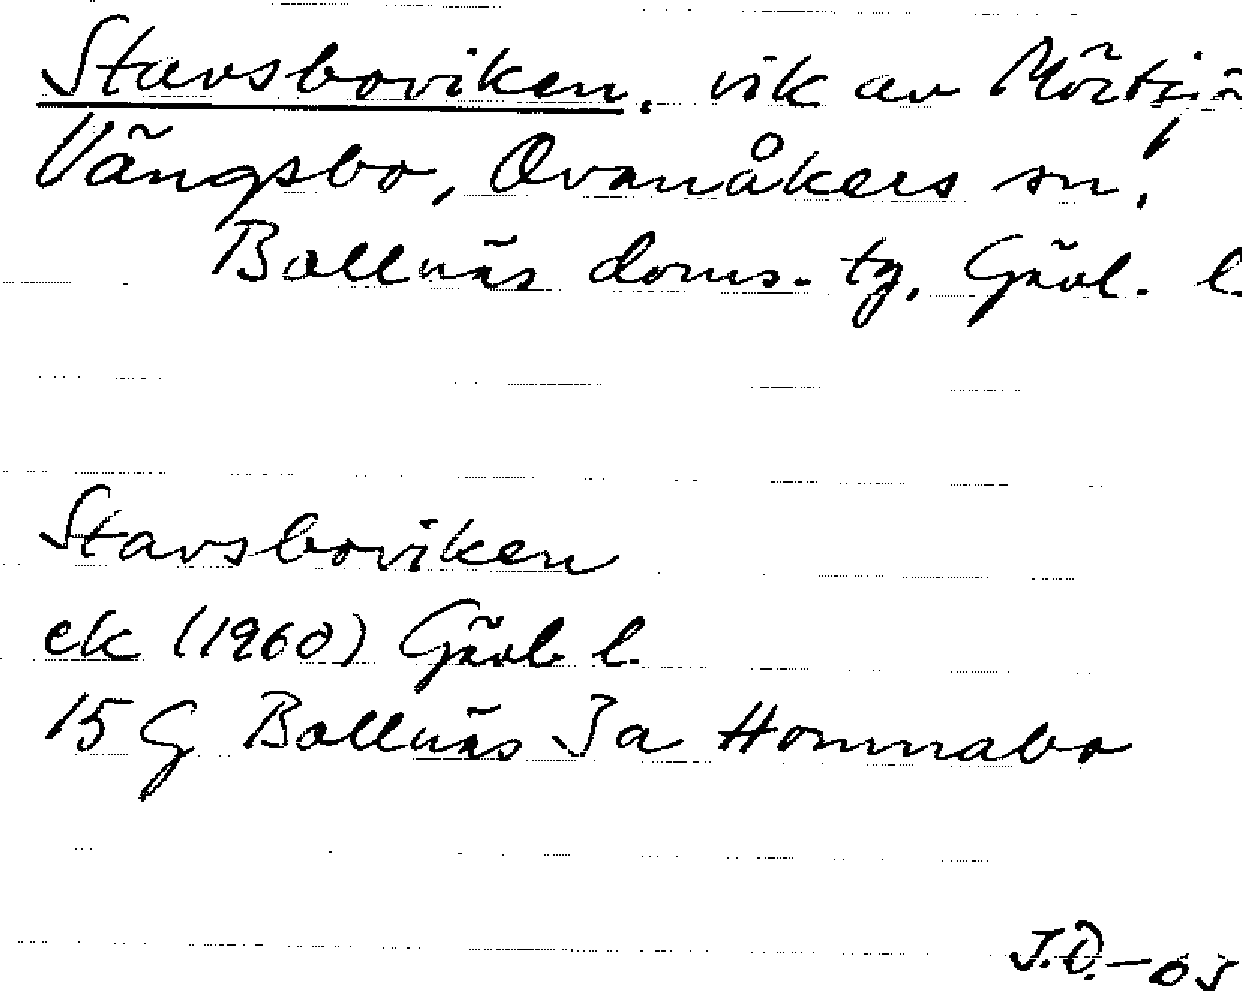 Stavsboviken, vik av Mörtsjö
Vängsbo, Ovanåkers sn,
Bollnäs doms. tg, Gävl. l.
Stavsboviken
ek (1960) Gävl. l.
15 G Bollnäs 3 a Hommabo
J.Ö.-05